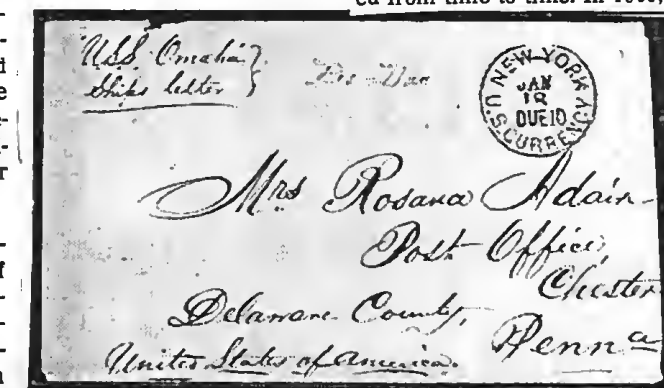 ed from time to time. In
U.S.S. Omaha }
Ships letter }
NEW YORK
JAN
18
DUE 10
U.S. CURRENCY
Mrs Rosana Adair
Post Office,
Chester
Delaware County,
Penna
United States of America.